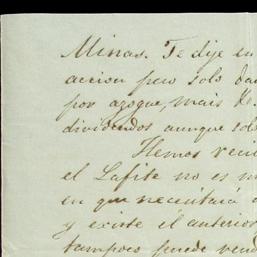 Minas. Te dije en
accion pero solo
por azogue, mais
dividendos aunque solo
Hemos
el Lafite no es
en que necesitará
y existe el anterior
tampoco puede